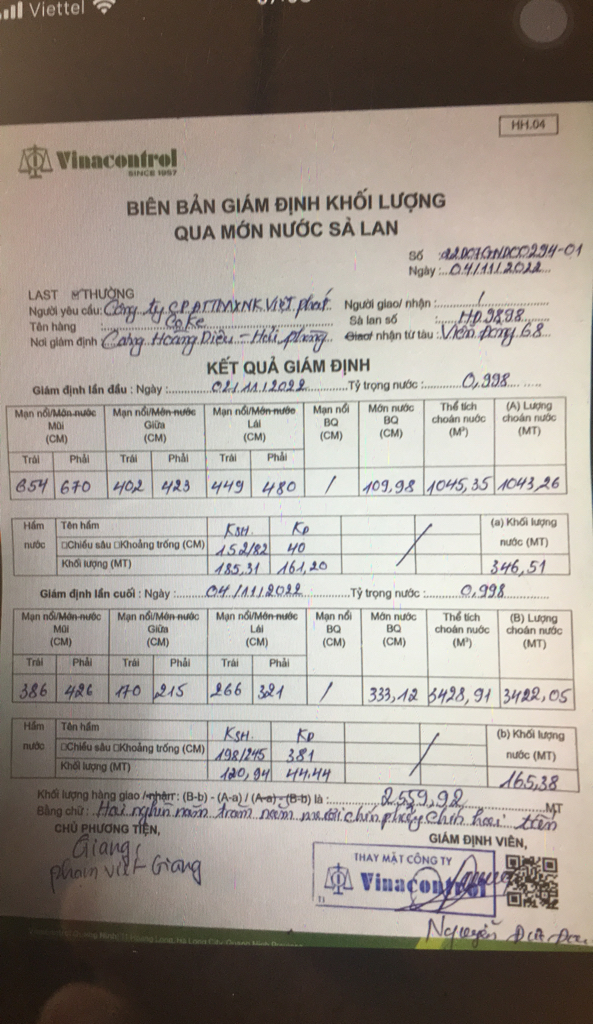 Viettel
HH.04
Vinacontrol
SINCE 1957
BIÊN BẢN GIÁM ĐỊNH KHỐI LƯỢNG
QUA MỚN NƯỚC SÀ LAN
Số
Ngày: 04/11/2022
LAST THƯỜNG
Người yêu cầu: Công ty CP ĐTTMXNK Việt phát Người giao/ nhận: /
Tên hàng : Cốke Sà lan số : HP 9898
Nơi giám định Cảng Hoàng Diệu - Hải phòng Giao/ nhận từ tàu: Viễn Đông 68
KẾT QUẢ GIÁM ĐỊNH
Giám định lần đầu : Ngày: 02/11/2022 Tỷ trọng nước: 0,998
Mạn nổi/Mớn nước Mũi (CM) Mạn nổi/Mớn nước Giữa (CM) Mạn nổi/Mớn nước Lái (CM) Mạn nổi BQ (CM) Mớn nước BQ (CM) Thể tích choán nước (M³) (A) Lượng choán nước (MT)
Trái Phải Trái Phải Trái Phải
654 670 402 423 449 480 / 109,98 1045,35 1043,26
Hầm nước Tên hầm KSH KP (a) Khối lượng nước (MT)
Chiều sâu Khoảng trống (CM) 152/82 40
Khối lượng (MT) 185,31 161,20 346,51
Giám định lần cuối : Ngày: 04/11/2022 Tỷ trọng nước: 0,998
Mạn nổi/Mớn nước Mũi (CM) Mạn nổi/Mớn nước Giữa (CM) Mạn nổi/Mớn nước Lái (CM) Mạn nổi BQ (CM) Mớn nước BQ (CM) Thể tích choán nước (M³) (B) Lượng choán nước (MT)
Trái Phải Trái Phải Trái Phải
386 426 170 215 266 321 / 333,12 3428,91 3422,05
Hầm nước Tên hầm KSH KP (b) Khối lượng nước (MT)
Chiều sâu Khoảng trống (CM) 198/245 381
Khối lượng (MT) 120,94 44,44 165,38
Khối lượng hàng giao /nhận: (B-b) - (A-a) / (A-a) - (B-b) là : 2.559,92 MT
Bằng chữ : Hai nghìn năm trăm năm mươi chín phẩy chín hai tấn
CHỦ PHƯƠNG TIỆN, GIÁM ĐỊNH VIÊN,
Giang
phạm việt Giang
THAY MẶT CÔNG TY
Vinacontrol
Nguyễn